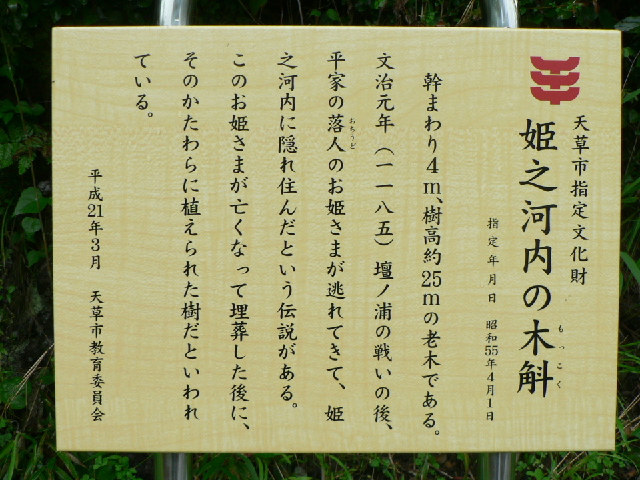 天草市指定文化財
姫之河内の木斛
もっこく
指定年月日 昭和55年4月1日
幹まわり4m、樹高約25mの老木である。
文治元年(一一八五)壇ノ浦の戦いの後、
平家の落人のお姫さまが逃れてきて、姫
おちうど
之河内に隠れ住んだという伝説がある。
このお姫さまが亡くなって埋葬した後に、
そのかたわらに植えられた樹だといわれ
ている。
平成21年3月 天草市教育委員会